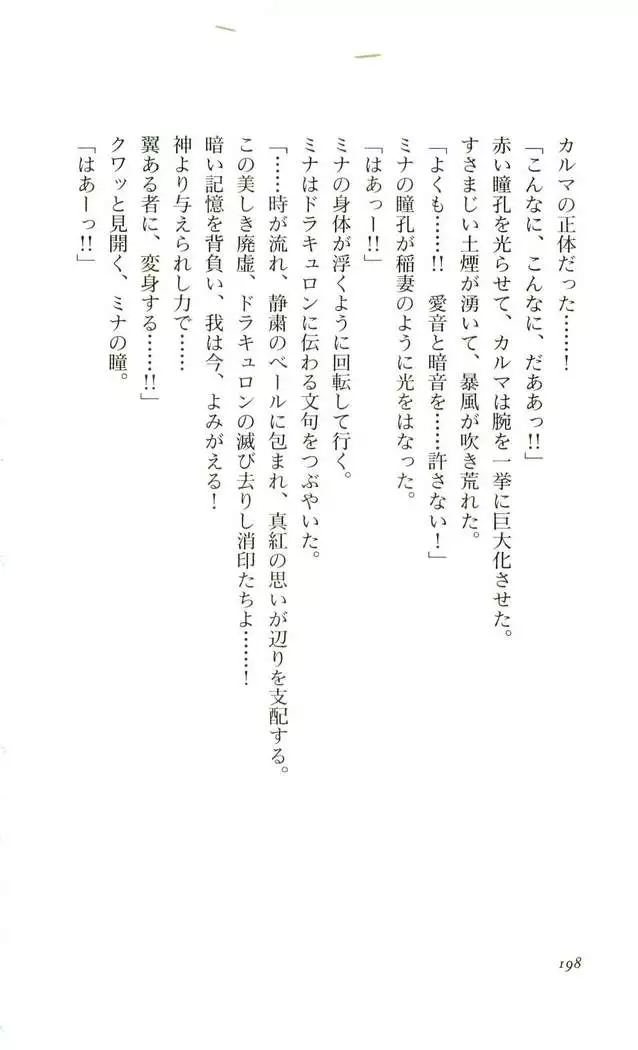 カルマの正体だった……！
「こんなに、こんなに、だああっ!!」
赤い瞳孔を光らせて、カルマは腕を一挙に巨大化させた。
すさまじい土煙が湧いて、暴風が吹き荒れた。
「よくも……!!　愛音と暗音を……許さない！」
ミナの瞳孔が稲妻のように光をはなった。
「はあっー!!」
ミナの身体が浮くように回転して行く。
ミナはドラキュロンに伝わる文句をつぶやいた。
「……時が流れ、静粛のベールに包まれ、真紅の思いが辺りを支配する。
この美しき廃虚、ドラキュロンの滅び去りし消印たちよ……！
暗い記憶を背負い、我は今、よみがえる！
神より与えられし力で……
翼ある者に、変身する……!!」
クワッと見開く、ミナの瞳。
「はあーっ!!」
198